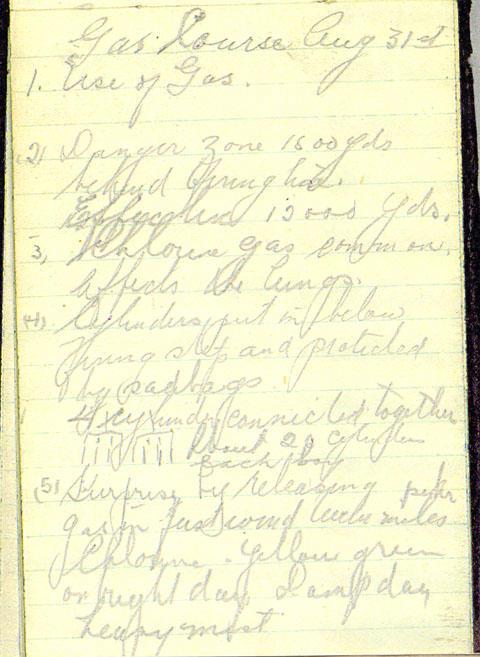 Gas Course Aug 31st
1. Use of Gas.
(2) Danger zone 1500 yds
behind firing line.
12000 yds.
3, Chlorine gas common.
affects the lungs.
(4) Cylinders put in below
firing step and protected
by sandbags.
4 cylinders connected together
About 20 cylinders
each bay
(5) Surprise by releasing
gas in fast wind miles
Chlorine. Yellow green
on bright day Damp day
heavy mist